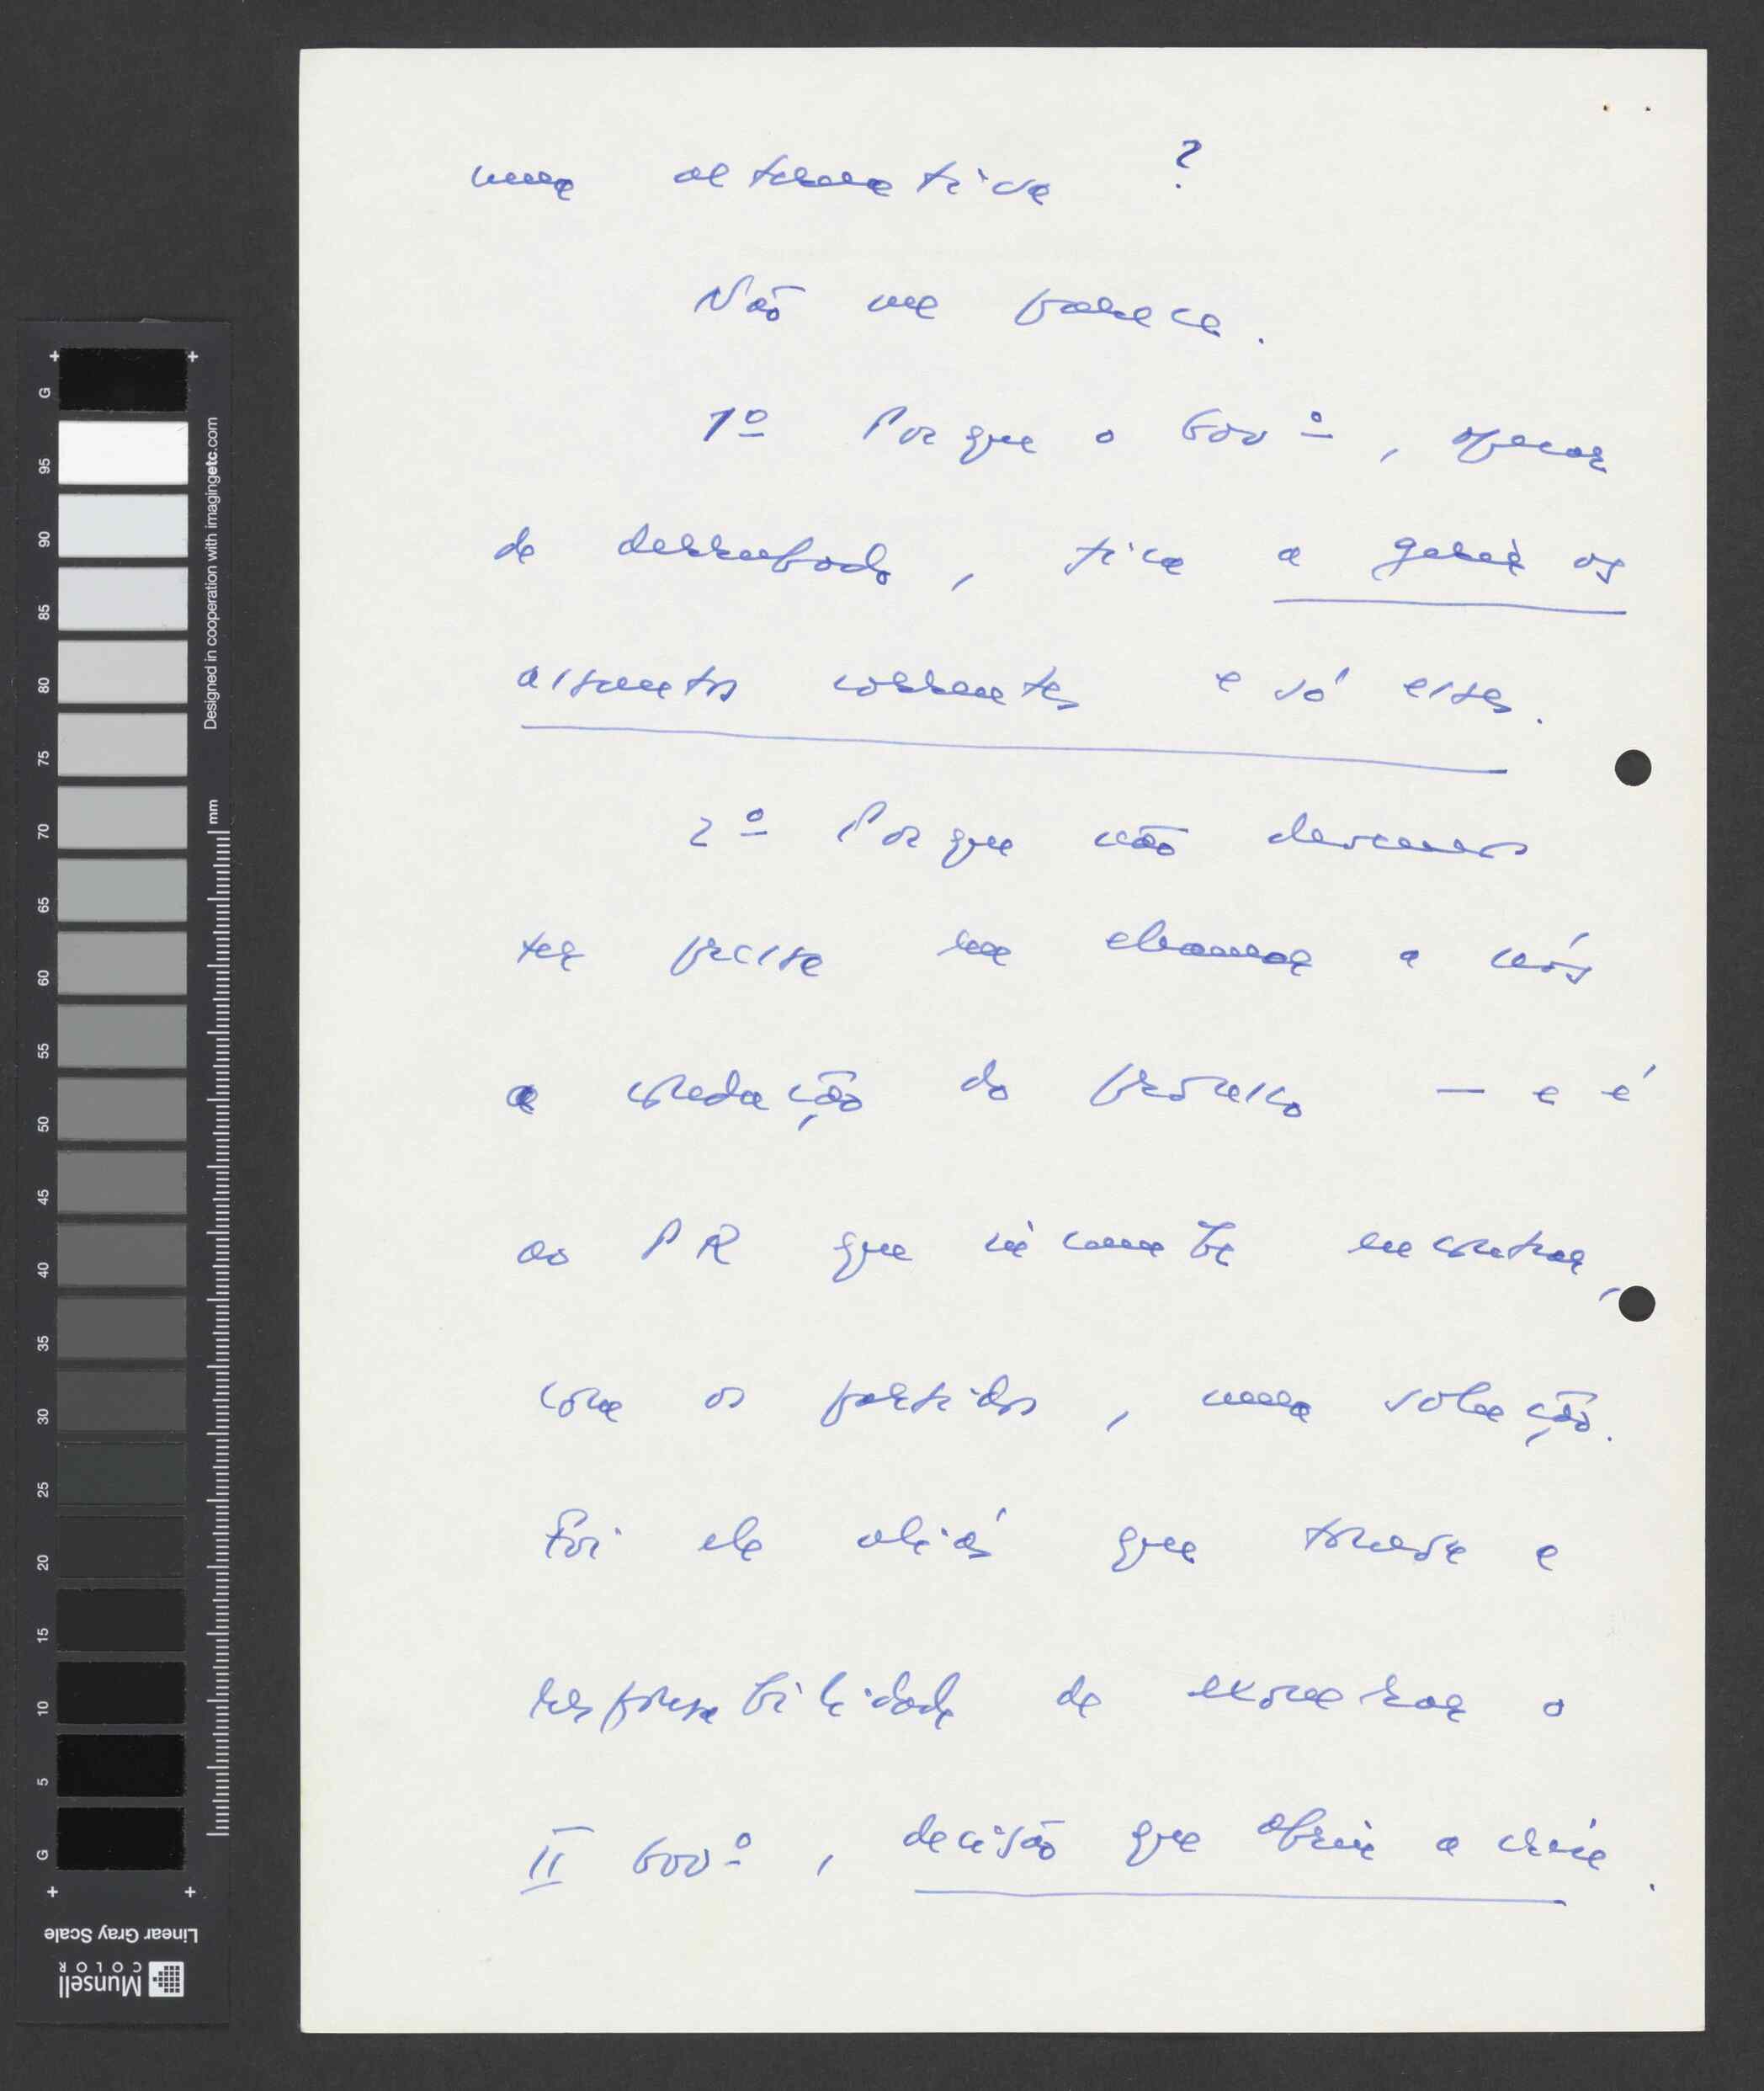 uma alternativa ?
Não me parece.
1º Porque o Govº, apesar
de derrubado, fica a gerir os
assuntos correntes e só esses.
2º Porque não devemos
ter pressa em chamar a nós
a condução do processo — e é
ao PR que incumbe encontrar,
com os partidos, uma solução.
Foi ele aliás que a
responsabilidade de exonerar o
II Govº, decisão que abriu a crise.
G 95 90 85 80 75 70 65 60 55 50 45 40 35 30 25 20 15 10 5 G
mm Designed in cooperation with imagingetc.com
Linear Gray Scale
Munsell
COLOR